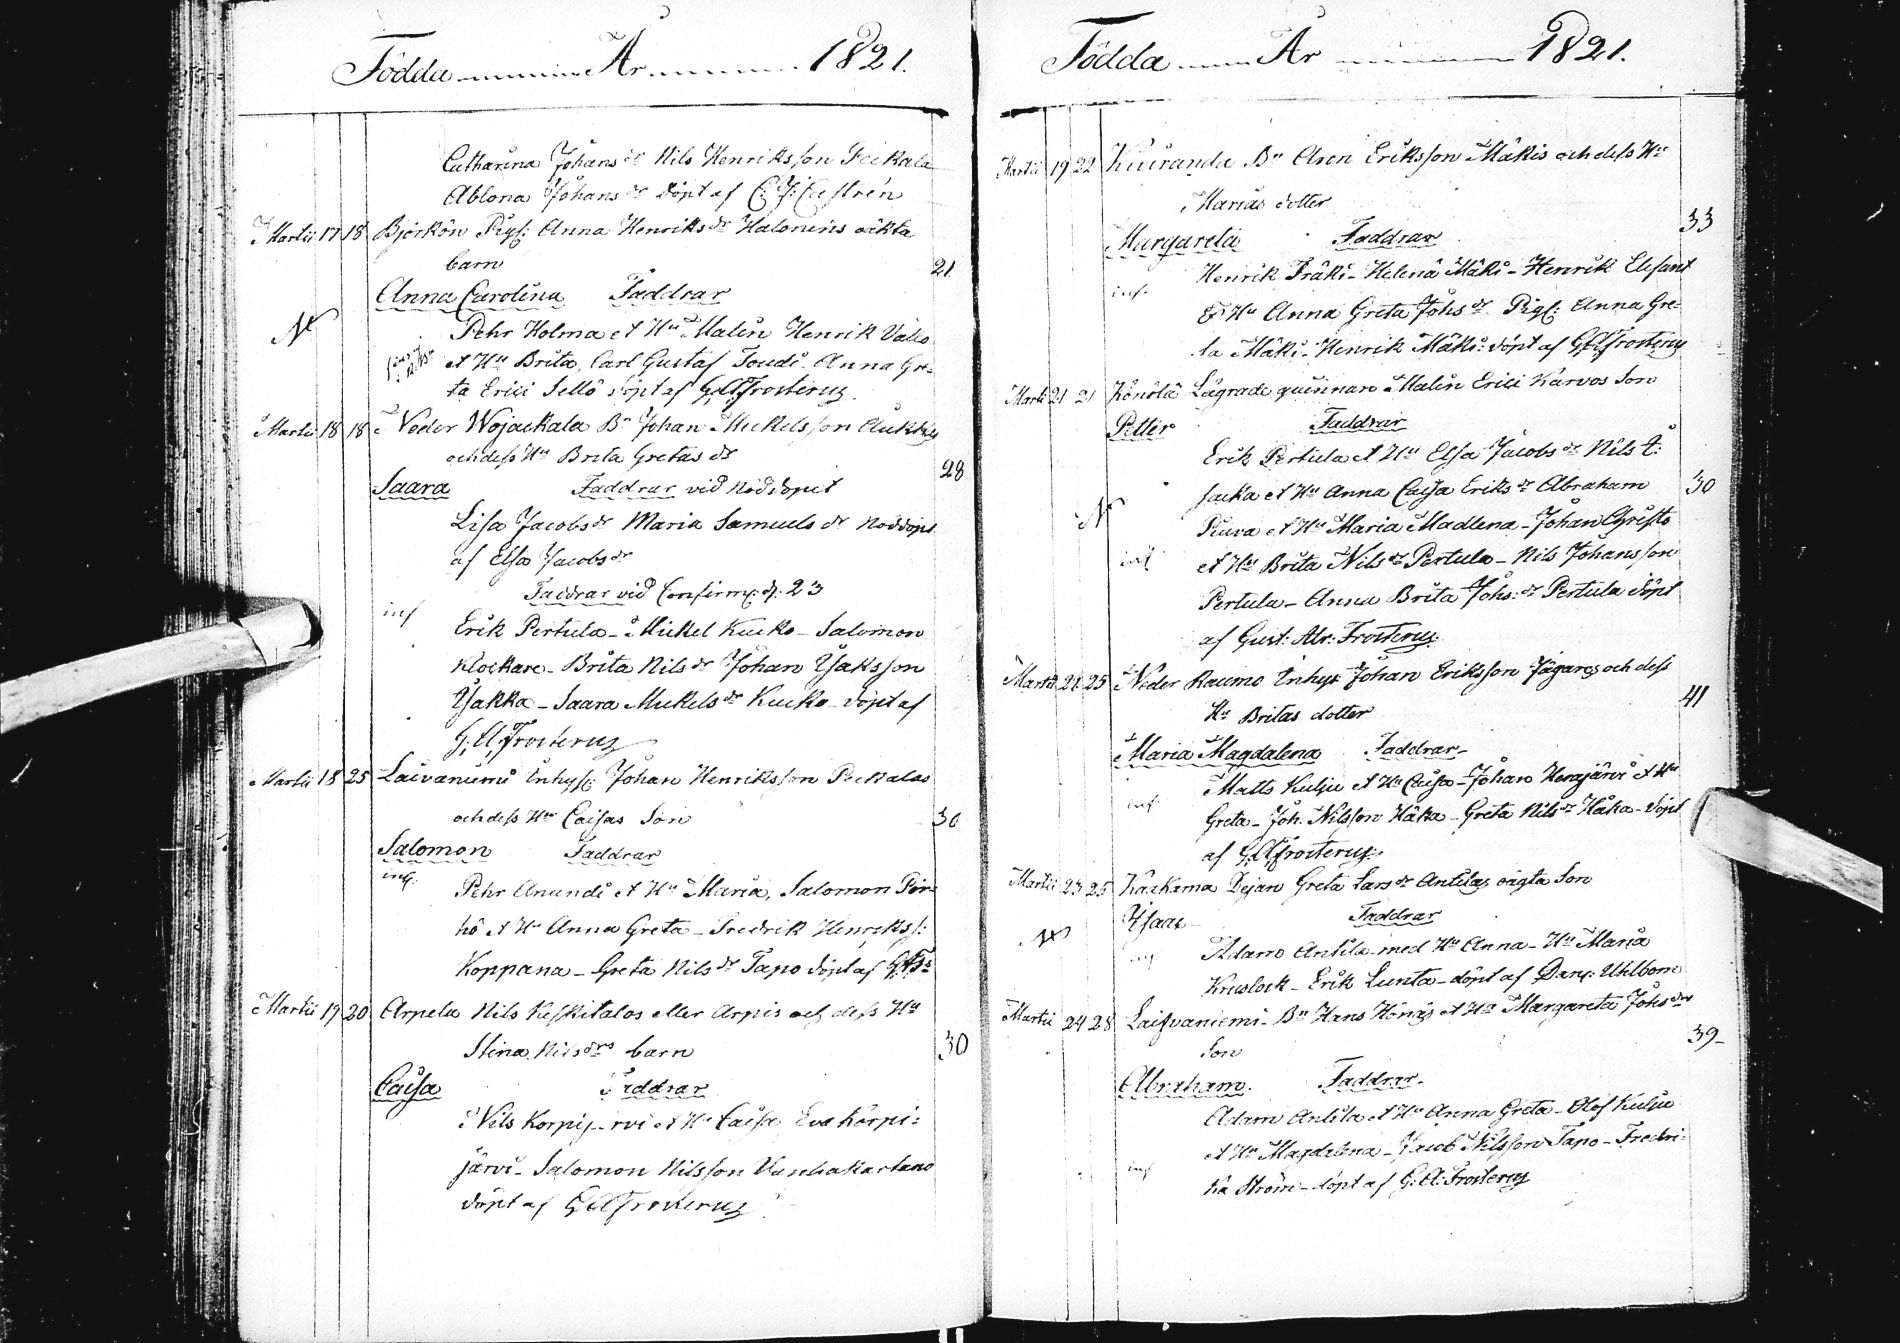 Födda År 1821.
Catharina Johans dr Nils Henriksson
Ablona Johans dr döpt af C: J: Castrén
Martii 17 18 Björkön Pig: Anna Henriks dr Halonens oäkta
barn 21
Anna Carolina Faddrar
Pehr Holma et Hu Malin Henrik Vallo
et Hu Brita, Carl Gustaf Anna Gre-
ta Erici Sello döpt af G. A. Frosterus.
Martii 18 18 Neder Wojackala Bn Johan Mickelsson
och dess Hu Brita Gretas dr 28
Saara Faddrar vid nöddopet
Lisa Jacobs dr Maria Samuels dr nöddöpt
af Elsa Jacobs dr
Faddrar vid Confirm: d. 23
inf
Erik Pertula - Mickel Kucko - Salomon
Klockare - Brita Nils dr Johan Ysaksson
Ysakka - Saara Mickels dr Kucko döpt af
G. A. Frosterus
Martii 18 25 Laivaniemi Inhyss: Johan Henriksson Peckalas
och dess Hu Caisas Son 30
Salomon Faddrar
inf.
Pehr Anundi et Hu Maria, Salomon Pör-
hö et Hu Anna Greta - Fredrik Henrikss:
Koppana - Greta Nils dr Tapo döpt af
Martii 19 20 Arpela Nils Keskitalos eller Arpis och dess Hu
Stina Nils drs barn 30
Caisa Faddrar
Nils Korpijärvi et Hu Caisa Eva Korpi-
järvi - Salomon Nilsson Vanhakartano
döpt af G A Frosterus
Födda År 1821.
Martii 19 22 Kuiranda Bn Aron Eriksson Mäkis och dess Hu
Marias dotter 33
Margareta Faddrar
inf.
Henrik Fräki - Helena Mäki - Henrik Elefant
& Hu Anna Greta Johs dr Pig: Anna Gre-
ta Mäki - Henrik Mäki: döpt af G A Frosterus
Martii 21 21 Könölä Lägrade quinnan Malin Erici Karvos Son
Petter Faddrar
Erik Pertula et Hu Elsa Jacobs dr Nils
et Hu Anna Caisa Eriks dr Abraham 30
Piuva et Hu Maria Madlena - Johan
inf
et Hu Brita Nils dr Pertula - Nils Johansson
Pertula - Anna Brita Johs: dr Pertula döpt
af Gust: Adr: Frosterus
Martii 21 25 Neder Raumo Inhys Johan Eriksson Jägares och dess
Hu Britas dotter 41
Maria Magdalena Faddrar
inf
Matts Kulju et Hu Caisa - Johan Herajärvi et Hu
Greta - Joh: Nilsson Häka - Greta Nils dr Häka - döpt
af G. A Frosterus
Martii 23 25 Kaakama Dejan Greta Lars dr Antilas oägta Son
Ysaac Faddrar
Adam Antila med Hu Anna - Hu Maria
Kruslock - Erik Lunta - döpt af Uhlbom
Martii 24 28 Laifvaniemi Bn Hans et Hu Margareta Johs drs
Son 39
Abraham Faddrar
Adam Antila et Hu Anna Greta - Olof Kulju
et Hu Magdalena - Jacob Nilsson Tapo - Fredri-
inf
ka Ström - döpt af G. A. Frosterus